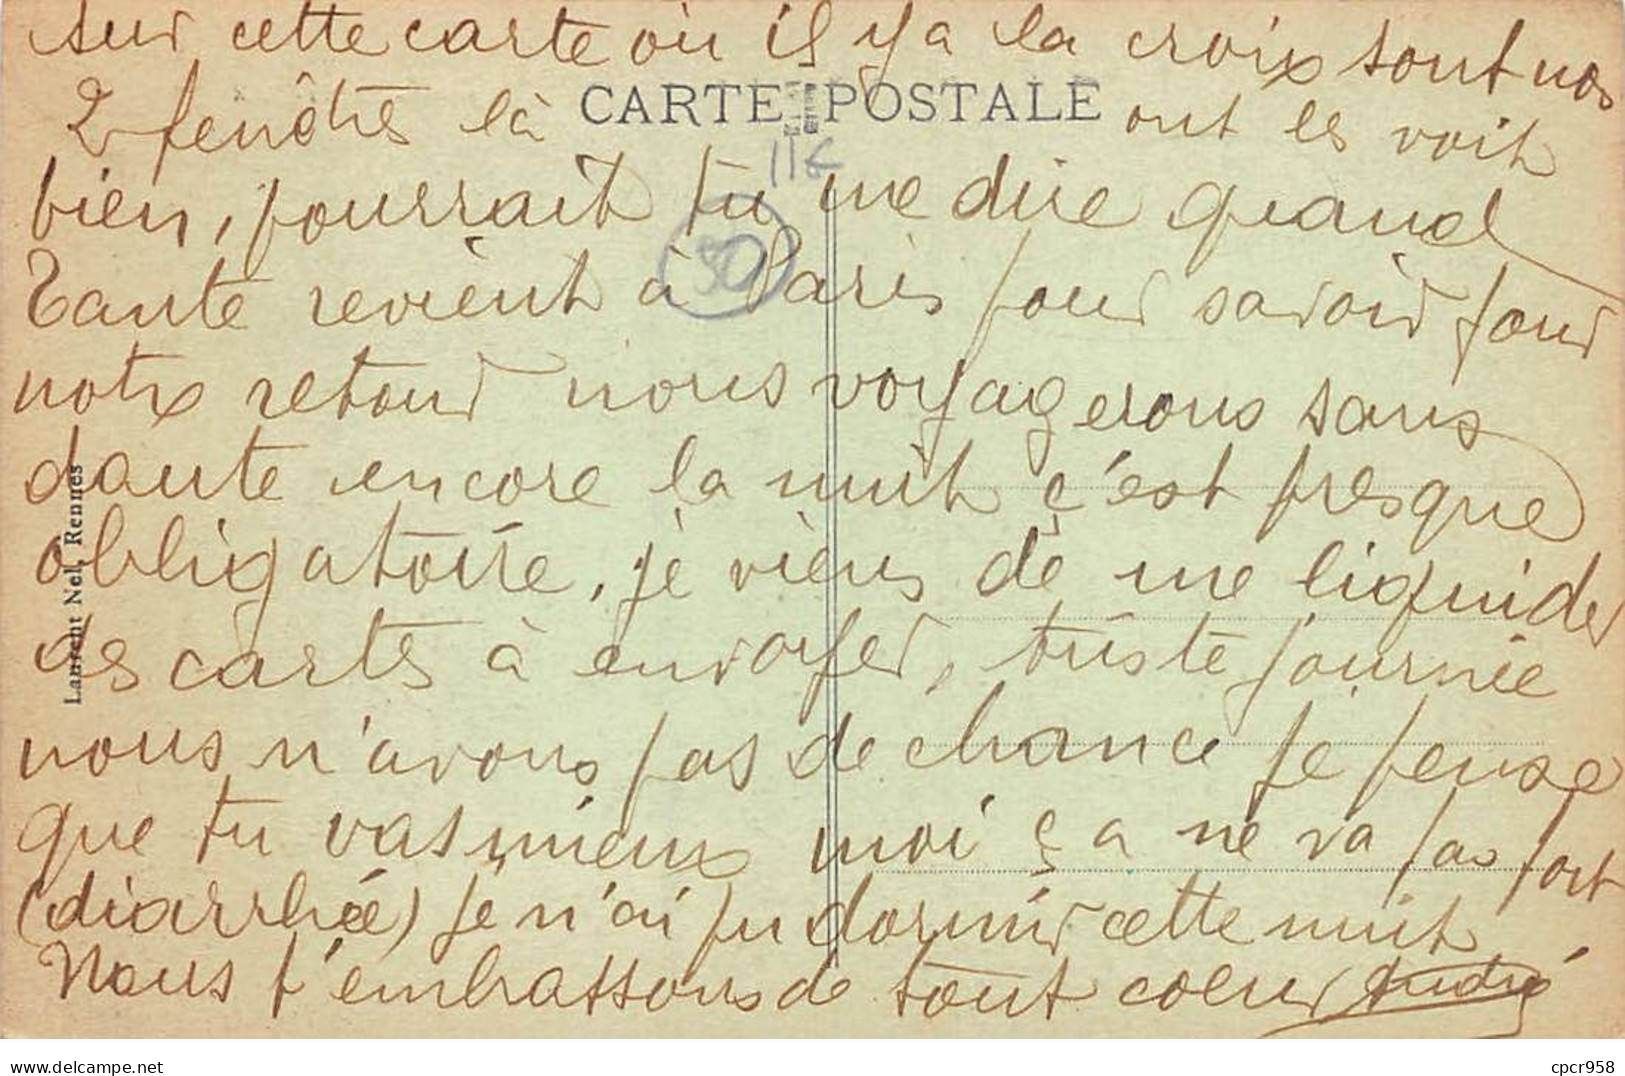 sur cette carte où il y a la croix sont nos
2 fenêtres là CARTE POSTALE ont les voit
11€
bien, pourrait tu me dire quand
50
Tante revient à Paris pour savoir pour
notre retour nous voyagerons sans
doute encore la nuit c'est presque
obligatoire, je viens de me liquider
des cartes à envoyer, triste journée
nous n'avons pas de chance je pense
que tu vas mieux moi ça ne va pas fort
(diarrhée) je n'ai pu dormir cette nuit
Nous t'embrassons de tout coeur André
Laurent Nel, Rennes
www.delcampe.net
cpcr958